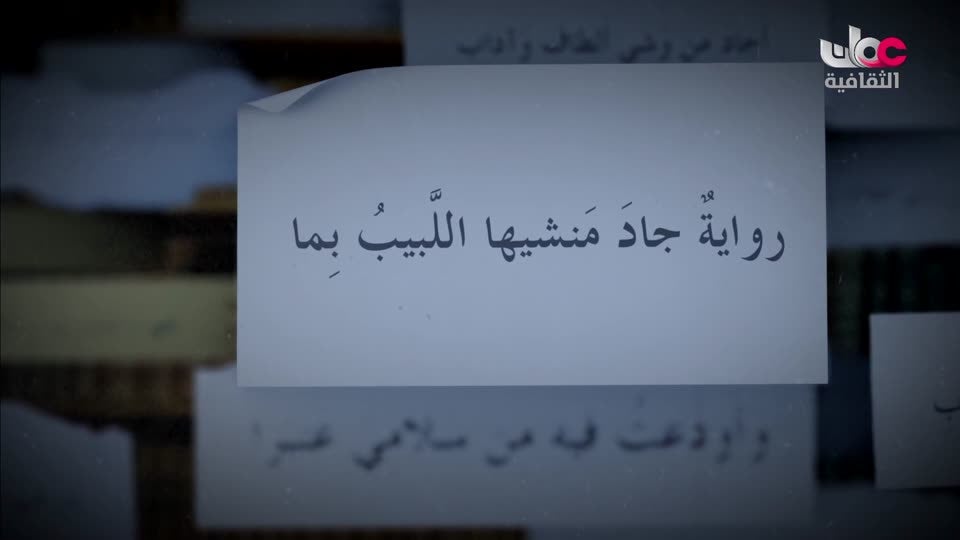 أجاد من وشي ألطاف وآداب
عمان
الثقافية
روايةٌ جادَ مَنشيها اللَّبيبُ بِما
وأودعتُ فيه من سلامي عبيرا